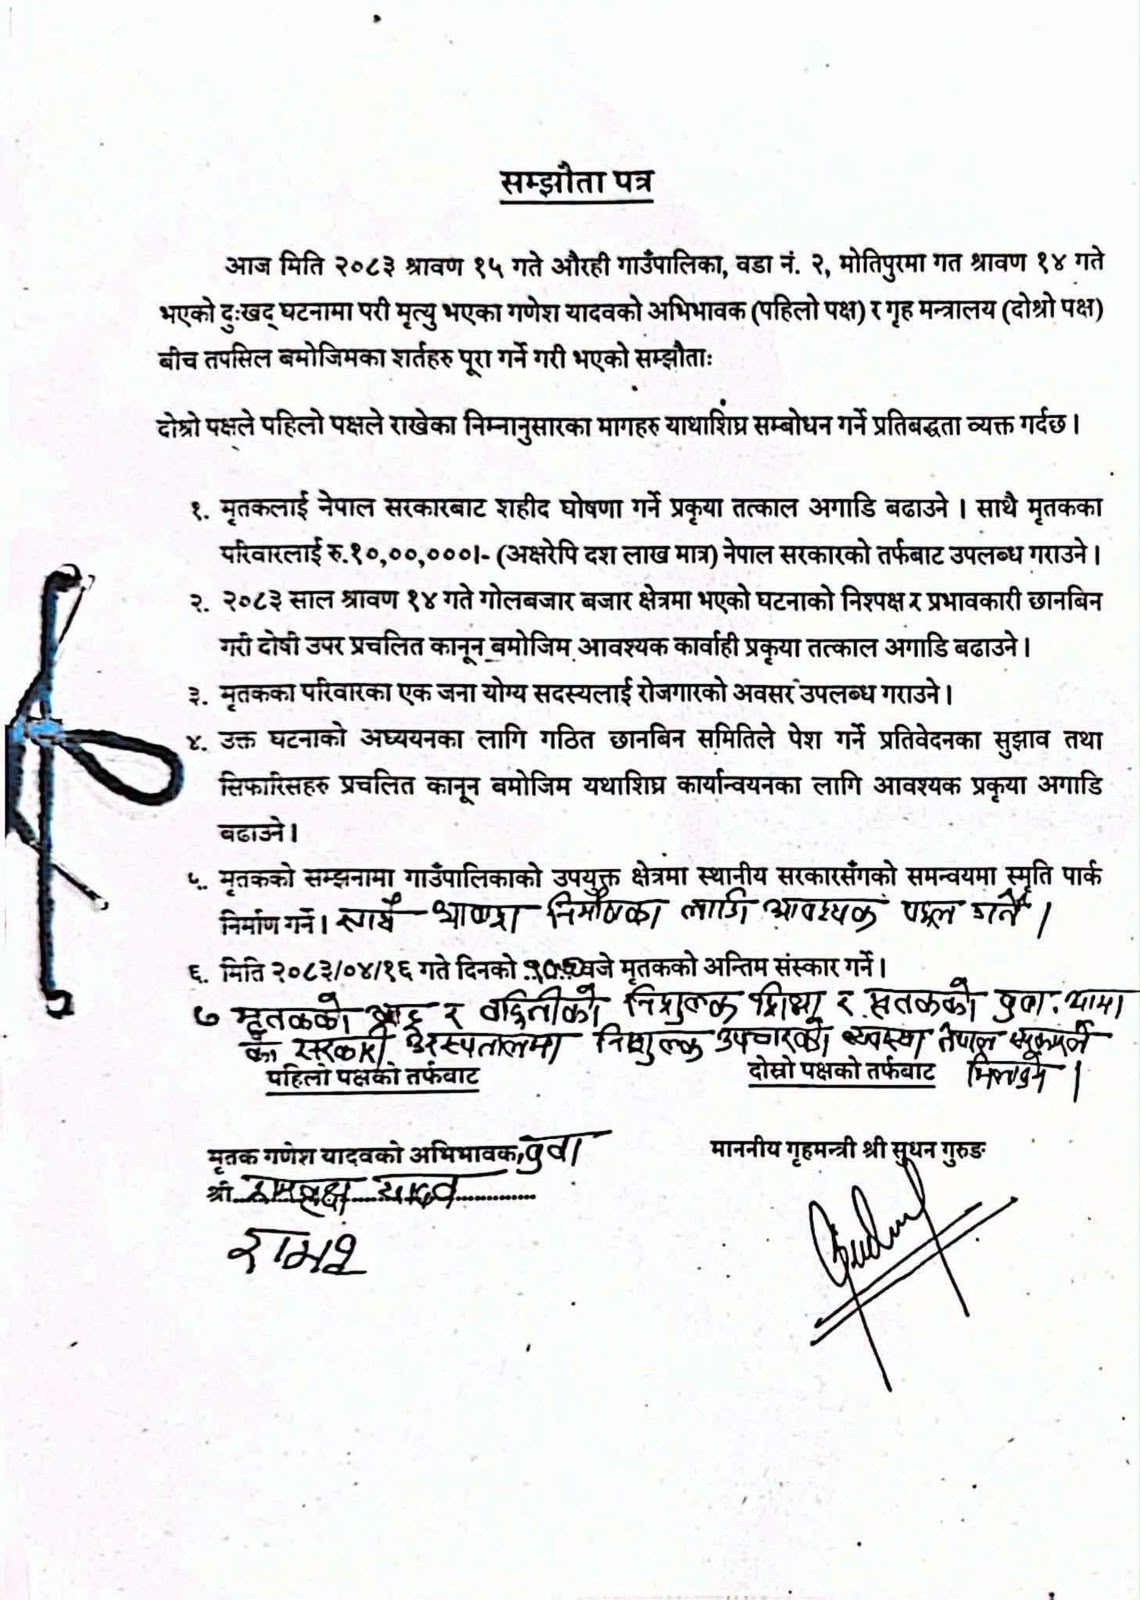 सम्झौता पत्र
आज मिति २०८३ श्रावण १५ गते औरही गाउँपालिका, वडा नं. २, मोतिपुरमा गत श्रावण १४ गते
भएको दुःखद् घटनामा परी मृत्यु भएका गणेश यादवको अभिभावक (पहिलो पक्ष) र गृह मन्त्रालय (दोश्रो पक्ष)
बीच तपसिल बमोजिमका शर्तहरु पूरा गर्ने गरी भएको सम्झौताः
दोश्रो पक्षले पहिलो पक्षले राखेका निम्नानुसारका मागहरु याथाशिघ्र सम्बोधन गर्ने प्रतिबद्धता व्यक्त गर्दछ ।
१. मृतकलाई नेपाल सरकारबाट शहीद घोषणा गर्ने प्रकृया तत्काल अगाडि बढाउने । साथै मृतकका
परिवारलाई रु.१०,००,०००।- (अक्षरेपि दश लाख मात्र) नेपाल सरकारको तर्फबाट उपलब्ध गराउने ।
२. २०८३ साल श्रावण १४ गते गोलबजार बजार क्षेत्रमा भएको घटनाको निश्पक्ष र प्रभावकारी छानबिन
गरी दोषी उपर प्रचलित कानून बमोजिम आवश्यक कार्वाही प्रकृया तत्काल अगाडि बढाउने ।
३. मृतकका परिवारका एक जना योग्य सदस्यलाई रोजगारको अवसर उपलब्ध गराउने ।
४. उक्त घटनाको अध्ययनका लागि गठित छानबिन समितिले पेश गर्ने प्रतिवेदनका सुझाव तथा
सिफारिसहरु प्रचलित कानून बमोजिम यथाशिघ्र कार्यान्वयनका लागि आवश्यक प्रकृया अगाडि
बढाउने ।
५. मृतकको सम्झनामा गाउँपालिकाको उपयुक्त क्षेत्रमा स्थानीय सरकारसँगको समन्वयमा स्मृति पार्क
निर्माण गर्ने । निर्माणका लागि आवश्यक पहल गर्ने ।
६. मिति २०८३/०४/१६ गते दिनको बजे मृतकको अन्तिम संस्कार गर्ने ।
७ मृतकको भाइ र बहिनीको निशुल्क शिक्षा र मृतकको बुवा. आमा
का सरकारी अस्पतालमा निशुल्क उपचारको व्यवस्था नेपाल सरकारले
मिलाउने ।
पहिलो पक्षको तर्फबाट
दोस्रो पक्षको तर्फबाट
मृतक गणेश यादवको अभिभावक, बुवा
श्री यादव
माननीय गृहमन्त्री श्री सुधन गुरुङ